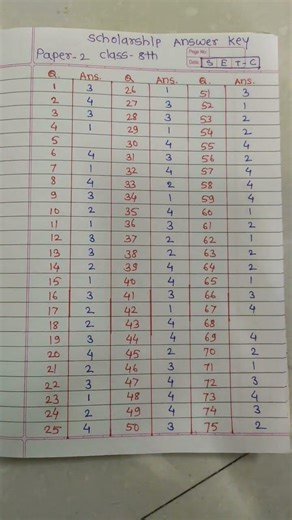 Scholarship Answer Key
Paper-2 Class-8th
Page No.
Date SET-C
Q. Ans. Q. Ans. Q. Ans.
1 3 26 1 51 3
2 4 27 3 52 1
3 3 28 3 53 2
4 1 29 1 54 2
5 30 4 55 4
6 4 31 3 56 2
7 1 32 4 57 4
8 4 33 2 58 4
9 3 34 1 59 4
10 2 35 4 60 1
11 1 36 3 61 2
12 3 37 2 62 1
13 3 38 2 63 2
14 2 39 4 64 2
15 1 40 4 65 1
16 3 41 3 66 3
17 2 42 1 67 4
18 2 43 4 68
19 3 44 4 69 4
20 4 45 2 70 2
21 2 46 3 71 1
22 3 47 4 72 3
23 1 48 4 73 4
24 2 49 4 74 3
25 4 50 3 75 2